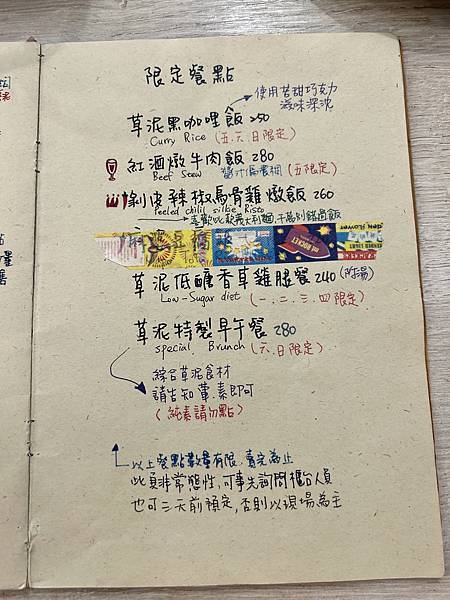 限定餐點
使用苦甜巧克力
滋味深沈
草泥黑咖哩飯 250
Curry Rice (五.六.日限定)
紅酒燉牛肉飯 280
Beef Stew 醬汁偏濃稠 (五限定)
剝皮辣椒烏骨雞燉飯 260
Peeled chili silkie Risto
喜歡此款義大利麵,千萬別錯過飯
草泥低醣香草雞腿餐 240 (附湯)
Low-Sugar diet (一.二.三.四限定)
草泥特製早午餐 280
special Brunch (六.日限定)
綜合草泥食材
請告知葷.素即可
(純素請勿點)
以上餐點數量有限.賣完為止
此頁非常態性,可事先詢問櫃台人員
也可三天前預定,否則以現場為主